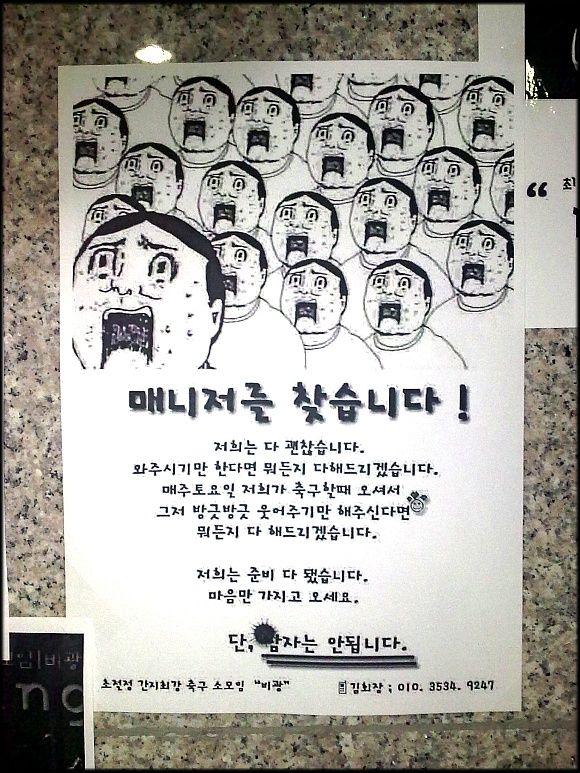 매니저를 찾습니다 !
저희는 다 괜찮습니다.
와주시기만 한다면 뭐든지 다해드리겠습니다.
매주토요일 저희가 축구할때 오셔서
그저 방긋방긋 웃어주기만 해주신다면
뭐든지 다 해드리겠습니다.
저희는 준비 다 됐습니다.
마음만 가지고 오세요.
단, 남자는 안됩니다.
초절정 간지최강 축구 소모임 "비광"
김회장 ; 010. 3534. 9247
“ 최
임|비광
ng